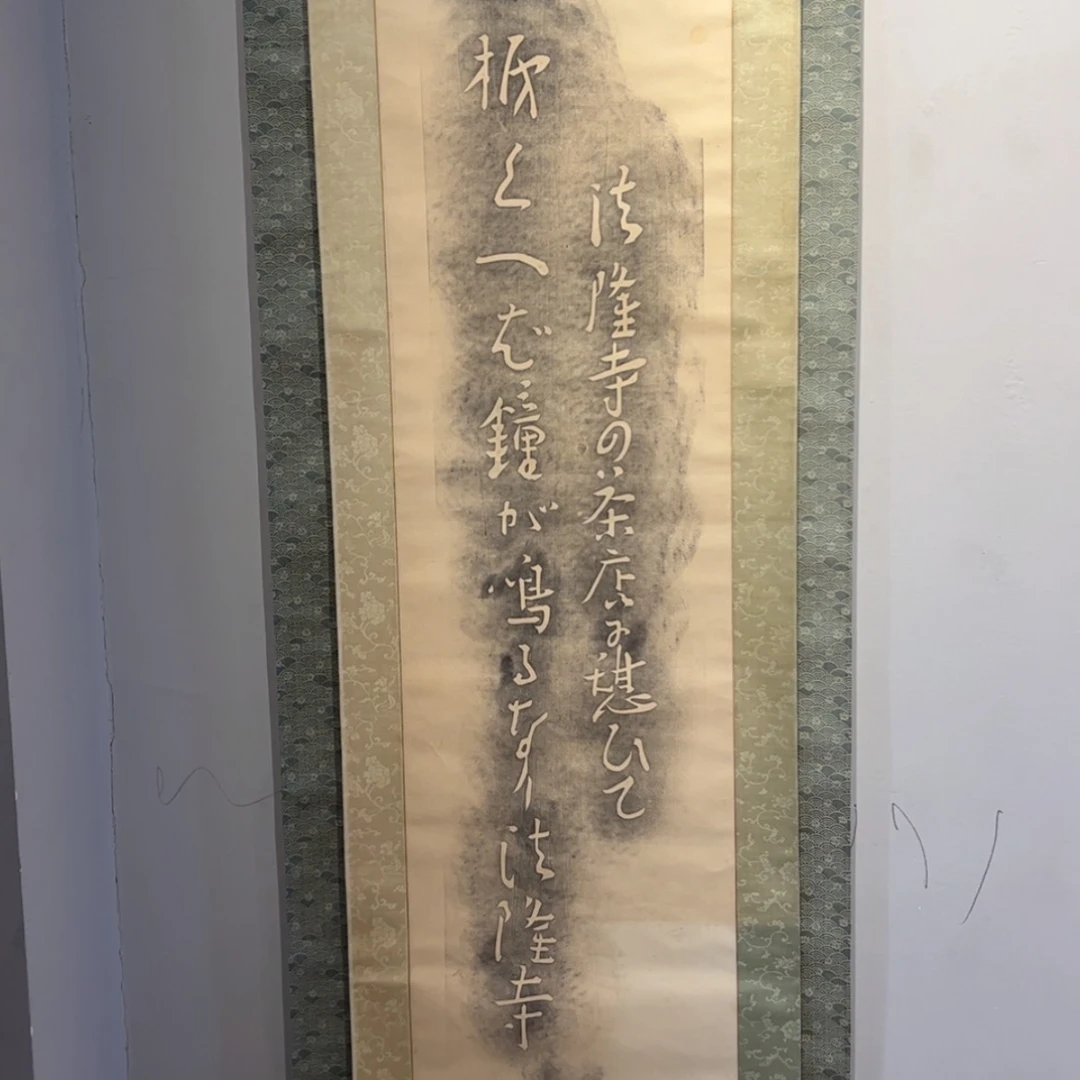 法隆寺の茶店に憩ひて
柿くへば鐘が鳴るなり法隆寺